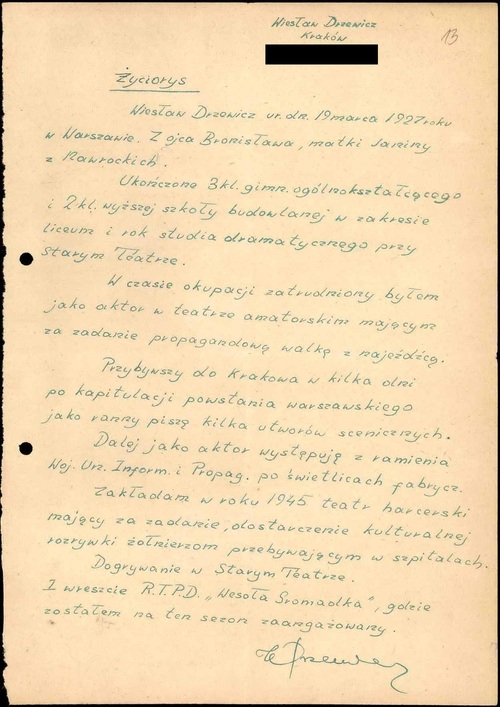 Wiesław Drzewicz
Kraków
13
Życiorys
Wiesław Drzewicz ur. dn. 19 marca 1927 roku
w Warszawie. Z ojca Bronisława, matki Janiny
z Nawrockich.
Ukończone 3 kl. gimn. ogólnokształcącego
i 2 kl. wyższej szkoły budowlanej w zakresie
liceum i rok studia dramatycznego przy
Starym Teatrze.
W czasie okupacji zatrudniony byłem
jako aktor w teatrze amatorskim mającym
za zadanie propagandową walkę z najeźdźcą.
Przybywszy do Krakowa w kilka dni
po kapitulacji powstania warszawskiego
jako ranny piszę kilka utworów scenicznych.
Dalej jako aktor występuję z ramienia
Woj. Urz. Inform. i Propag. po świetlicach fabrycz.
Zakładam w roku 1945 teatr harcerski
mający za zadanie, dostarczenie kulturalnej
rozrywki żołnierzom przebywającym w szpitalach.
Dogrywanie w Starym Teatrze.
I wreszcie R.T.P.D. „Wesoła Gromadka", gdzie
zostałem na ten sezon zaangażowany.
WDrzewicz